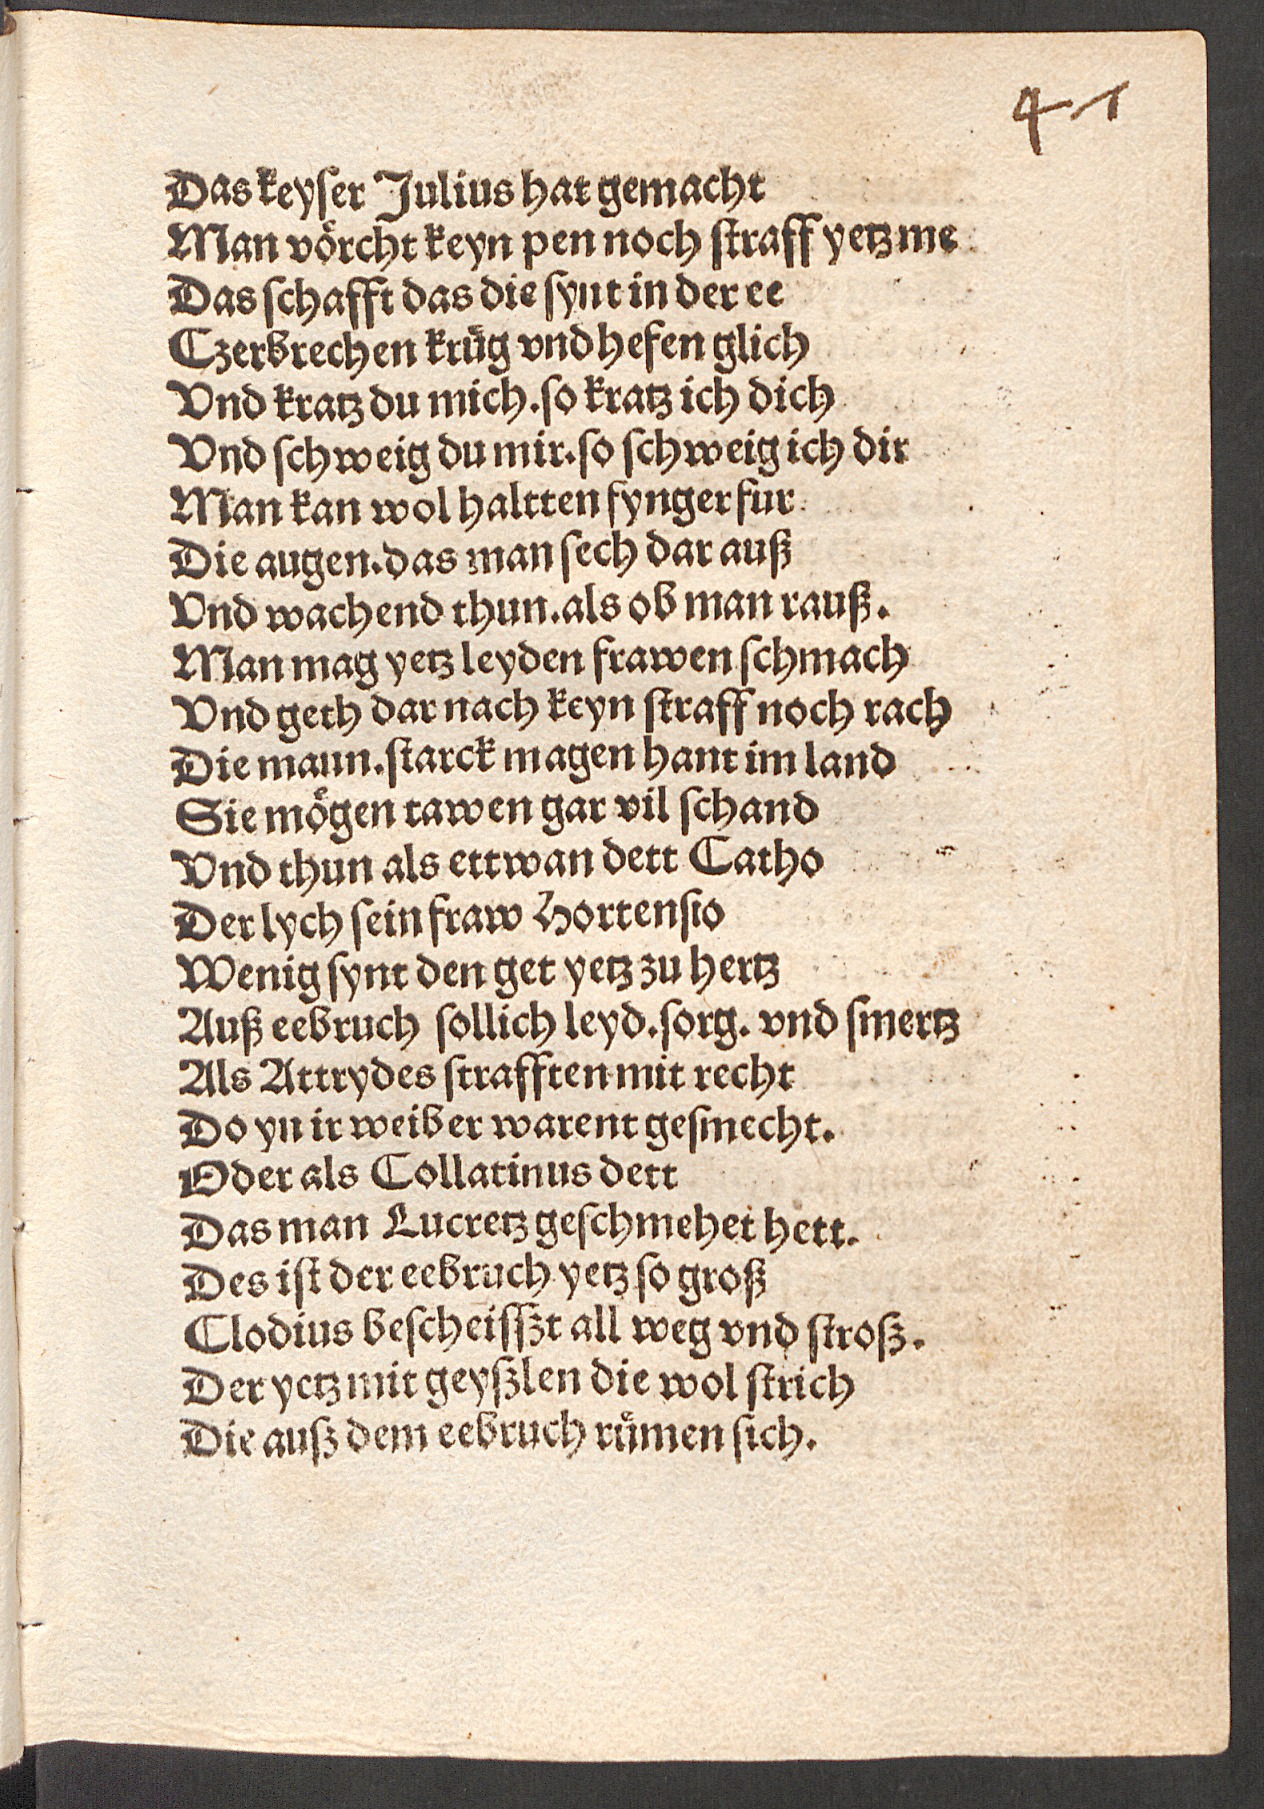 41
Das keyser Julius hat gemacht
Man voͤrcht keyn pen noch straff yetz me
Das schafft das die synt in der ee
Czerbrechen kruͤg vnd hefen glich
Vnd kratz du mich. so kratz ich dich
Vnd schweig du mir. so schweig ich dir
Man kan wol haltten fynger fur
Die augen. das man sech dar auß
Vnd wachend thun. als ob man rauß.
Man mag yetz leyden frawen schmach
Vnd geth dar nach keyn straff noch rach
Die maun. starck magen hant im land
Sie moͤgen tawen gar vil schand
Vnd thun als ettwan dett Catho
Der lych sein fraw Hortensio
Wenig synt den get yetz zu hertz
Auß eebruch sollich leyd. sorg. vnd smertz
Als Attrydes strafften mit recht
Do yn ir weiber warent gesmecht.
Oder als Collatinus dett
Das man Lucretz geschmehet hett.
Des ist der eebruch yetz so groß
Clodius bescheisszt all weg vnd stroß.
Der yetz mit geyßlen die wol strich
Die auß dem eebruch ruͤmen sich.